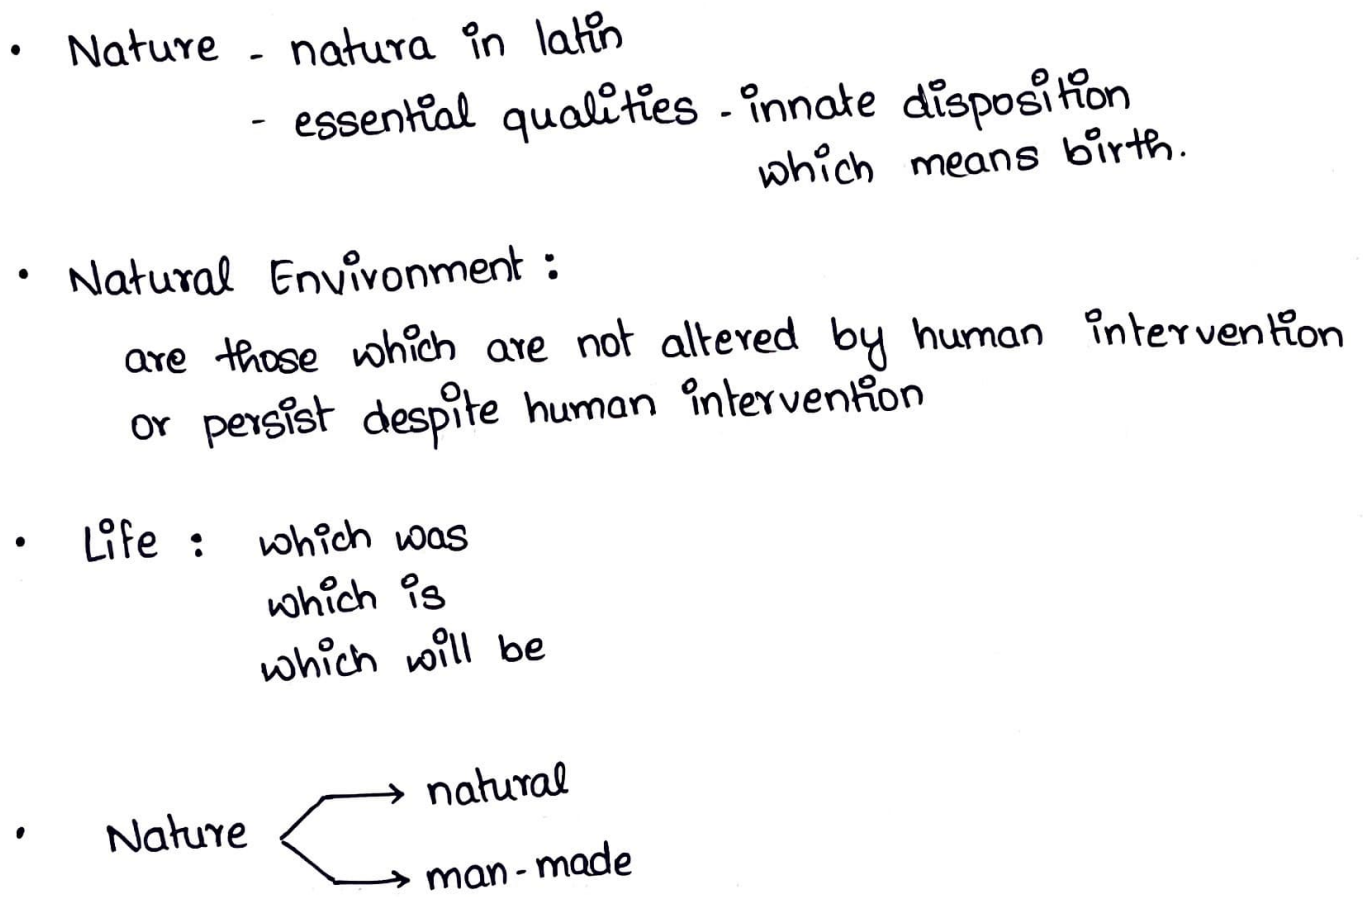 • Nature - natura in latin
- essential qualities - innate disposition
which means birth.
• Natural Environment :
are those which are not altered by human intervention
or persist despite human intervention
• Life : which was
which is
which will be
• Nature → natural
→ man-made